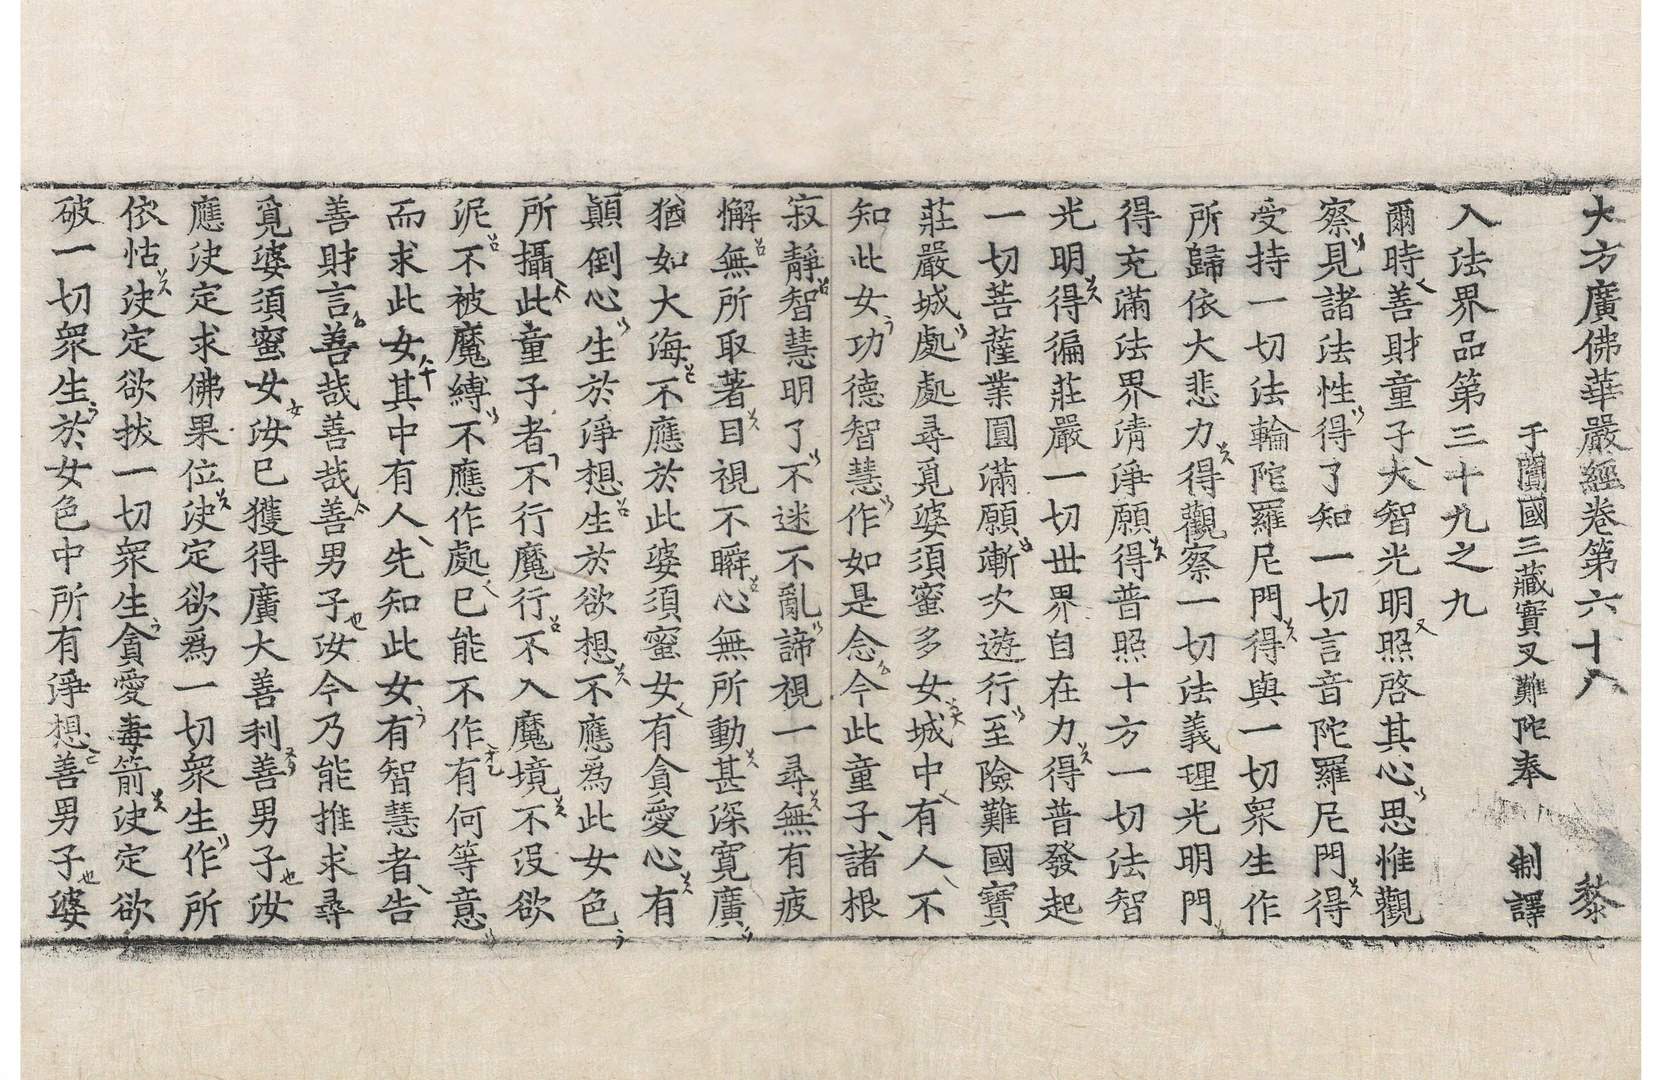 大方廣佛華嚴經卷第六十八 黎
于闐國三藏實叉難陀奉 制譯
入法界品第三十九之九
爾時善財童子大智光明照啓其心思惟觀
察見諸法性得了知一切言音陀羅尼門得
受持一切法輪陀羅尼門得與一切衆生作
所歸依大悲力得觀察一切法義理光明門
得充滿法界清淨願得普照十方一切法智
光明得徧莊嚴一切世界自在力得普發起
一切菩薩業圓滿願漸次遊行至險難國寶
莊嚴城處處尋覓婆須蜜多女城中有人不
知此女功德智慧作如是念今此童子諸根
寂靜智慧明了不迷不亂諦視一尋無有疲
懈無所取著目視不瞬心無所動甚深寬廣
猶如大海不應於此婆須蜜女有貪愛心有
顚倒心生於淨想生於欲想不應爲此女色
所攝此童子者不行魔行不入魔境不沒欲
泥不被魔縛不應作處已能不作有何等意
而求此女其中有人先知此女有智慧者告
善財言善哉善哉善男子汝今乃能推求尋
覓婆須蜜女汝已獲得廣大善利善男子汝
應決定求佛果位決定欲爲一切衆生作所
依怙決定欲拔一切衆生貪愛毒箭決定欲
破一切衆生於女色中所有淨想善男子婆